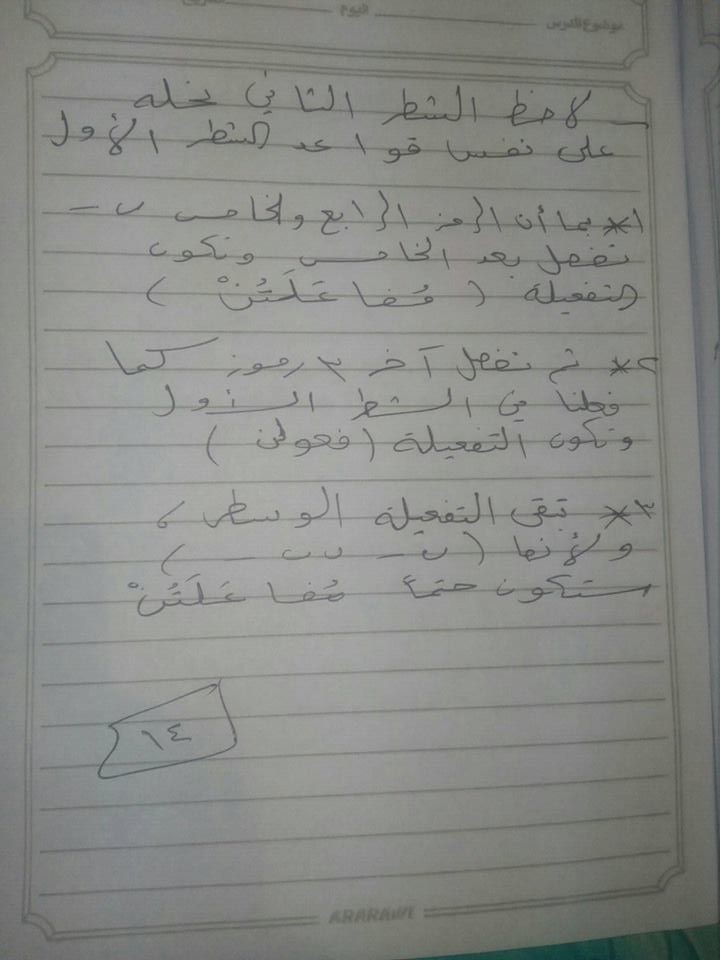 اليوم
موضوع الدرس
- لاحظ الشطر الثاني نحله
على نفس قواعد الشطر الأول
*١ بما أن الرمز الرابع والخامس ب -
نفصل بعد الخامس وتكون
التفعيلة ( مُفا عَلَتُنْ )
*٢ ثم نفصل آخر ٣ رموز كما
فعلنا في الشطر الأول
وتكون التفعيلة (فعولن )
*٣ تبقى التفعيلة الوسطى ،
ولأنها ( ب - ب ب - )
ستكون حتماً مُفا عَلَتُنْ
١٤
ARARAWE